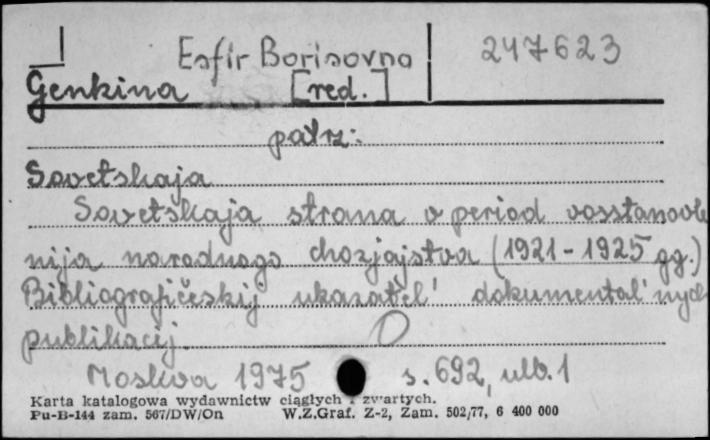 Esfir Borisovna 247623
Genkina [red.]
patrz:
Sovetskaja
Sovetskaja strana v period vosstanovle
nija narodnogo chozjajstva (1921-1925 gg.)
Bibliografičeskij ukazatel' dokumental'nych
publikacij.
Moskva 1975 s. 692, ulb. 1
Karta katalogowa wydawnictw ciągłych i zwartych.
Pu-B-144 zam. 567/DW/On W.Z.Graf. Z-2, Zam. 502/77, 6 400 000